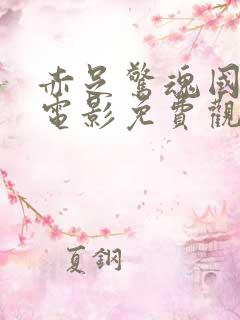 赤足驚魂国
電影免費觀
夏鋼